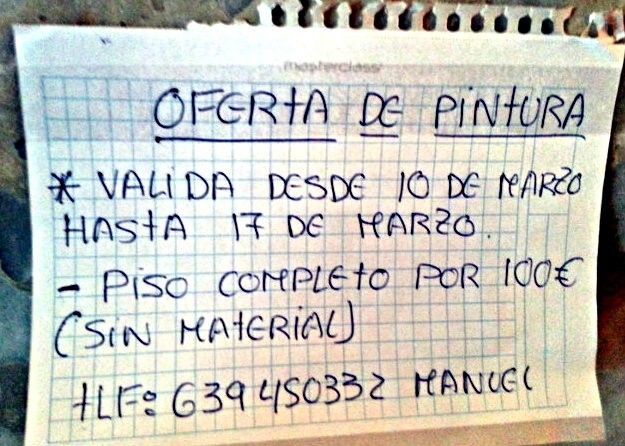 masterclass
OFERTA DE PINTURA
* VALIDA DESDE 10 DE MARZO
HASTA 17 DE MARZO.
- PISO COMPLETO POR 100€
(SIN MATERIAL)
TLF: 639450332 MANUEL